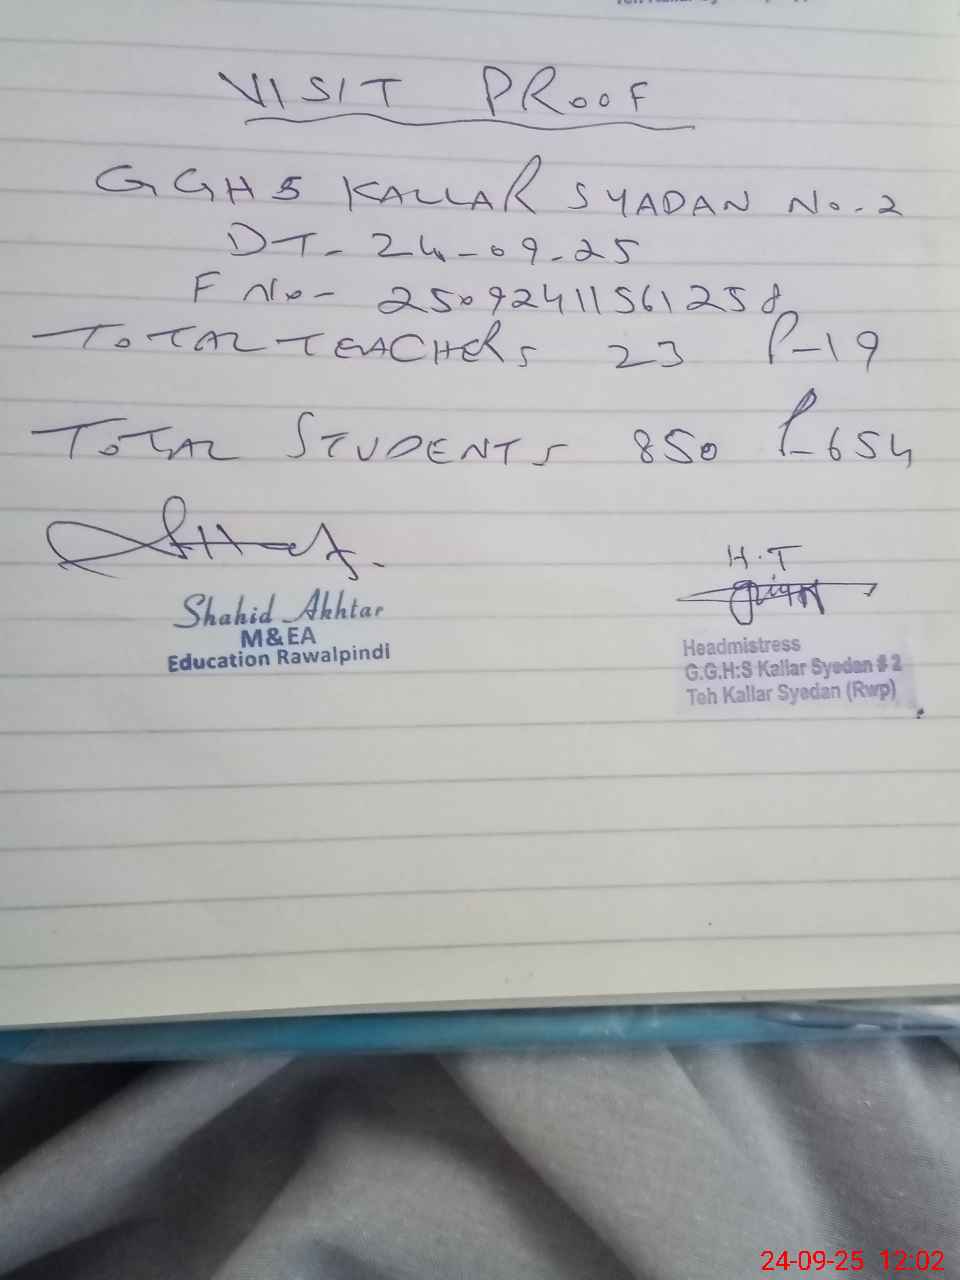 VISIT PROOF
GGHS KALLAR SYADAN No-2
DT- 24-09-25
F No- 25092411561258
TOTAL TEACHERS 23 P-19
TOTAL STUDENTS 850 P-654
Shahid Akhtar
M&EA
Education Rawalpindi
H.T
Headmistress
G.G.H:S Kallar Syedan # 2
Teh Kallar Syedan (Rwp)
24-09-25 12:02